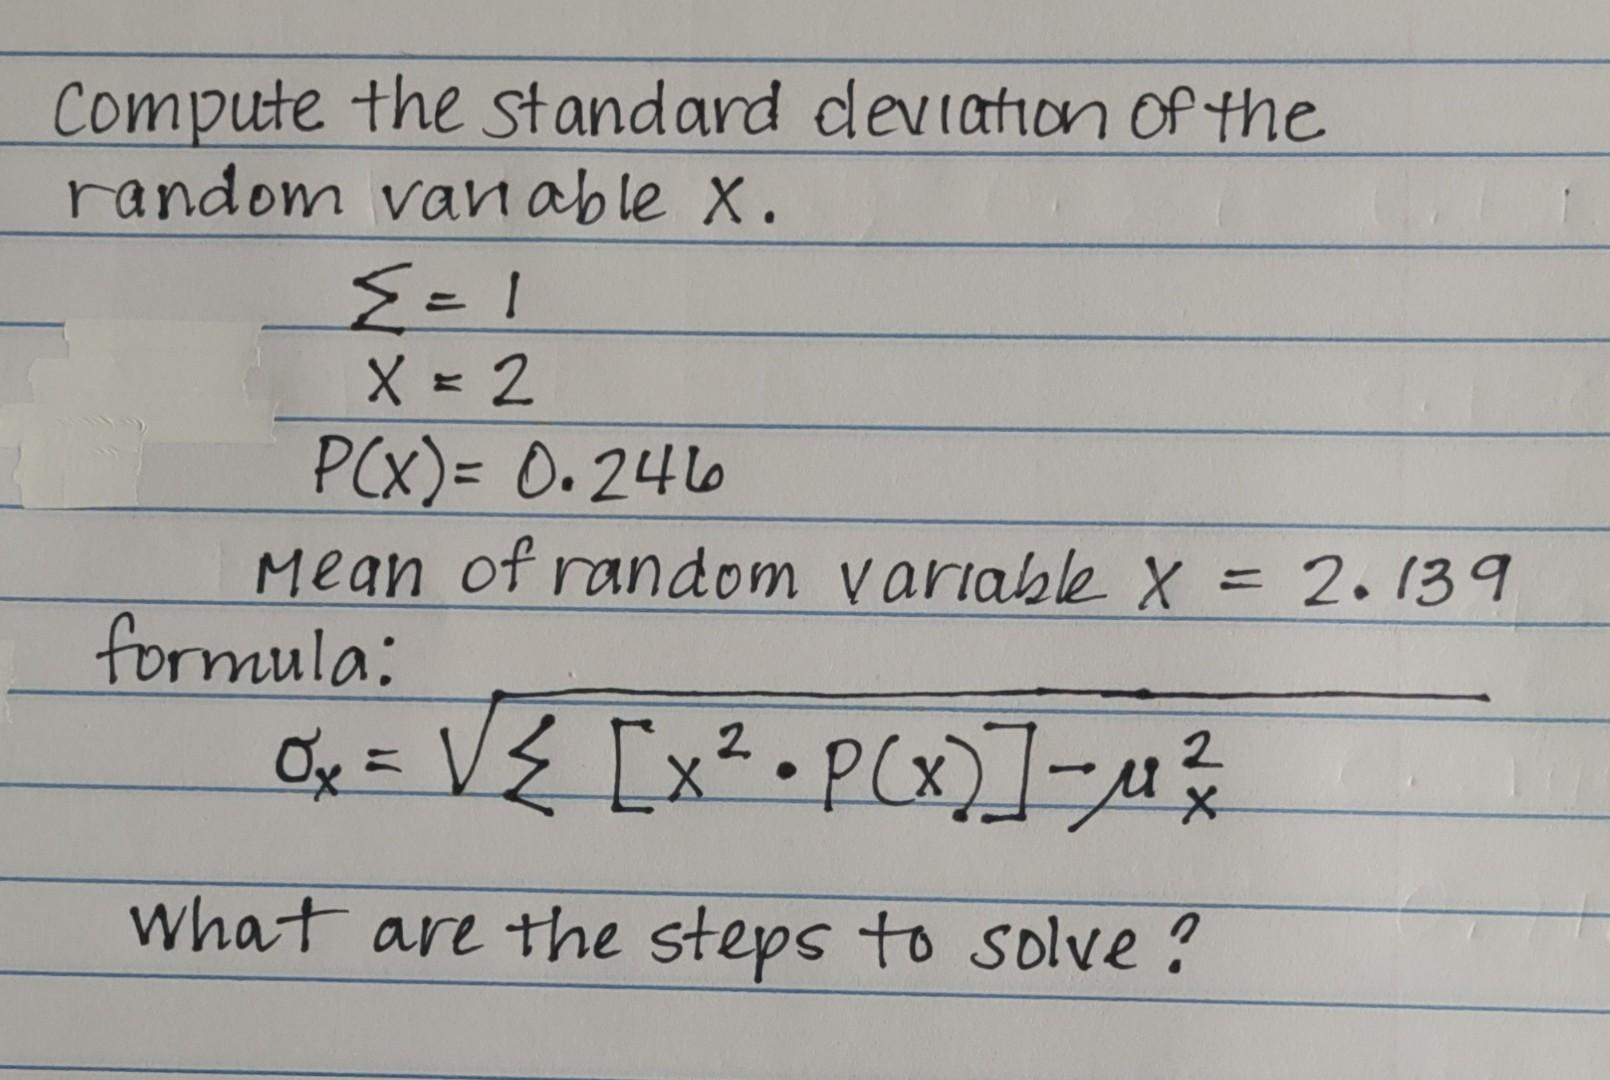 Compute the standard deviation of the
random variable X.
Σ = 1
X = 2
P(X)= 0.246
Mean of random variable X = 2.139
formula:
σₓ = √Σ [x² • P(x)] - μ²ₓ
What are the steps to solve?